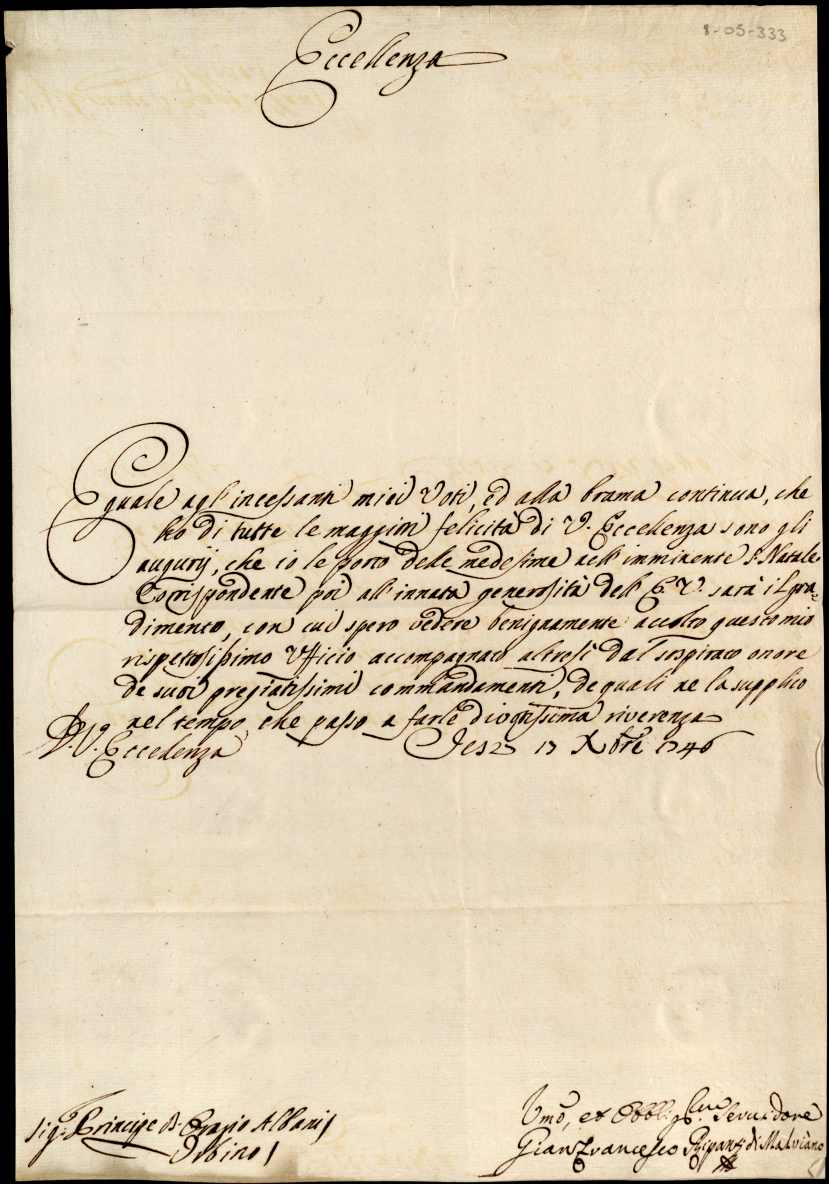 8-05-333
Eccellenza
Eguale agl'incessanti miei Voti, ed alla brama continua, che
ho di tutte le maggiori felicità di V. Eccellenza sono gli
augurij, che io le porto delle medesime nell'imminente S. Natale.
Corrispondente poi all'innata generosità dell'E. V. sarà il gra-
dimento, con cui spero vedere benignamente accolto questo mio
rispettosissimo Ufficio accompagnato altresì dal sospirato onore
de suoi pregiatissimi commandamenti, de quali ne la supplico
nel tempo, che passo a farle divotissima riverenza
D. V. Eccellenza Jesi 13 Xbre 1746
Sig: Principe D. Orazio Albani
Urbino
Umo, et Obbligmo Servidore
Gian Francesco Ripanti di Malviano